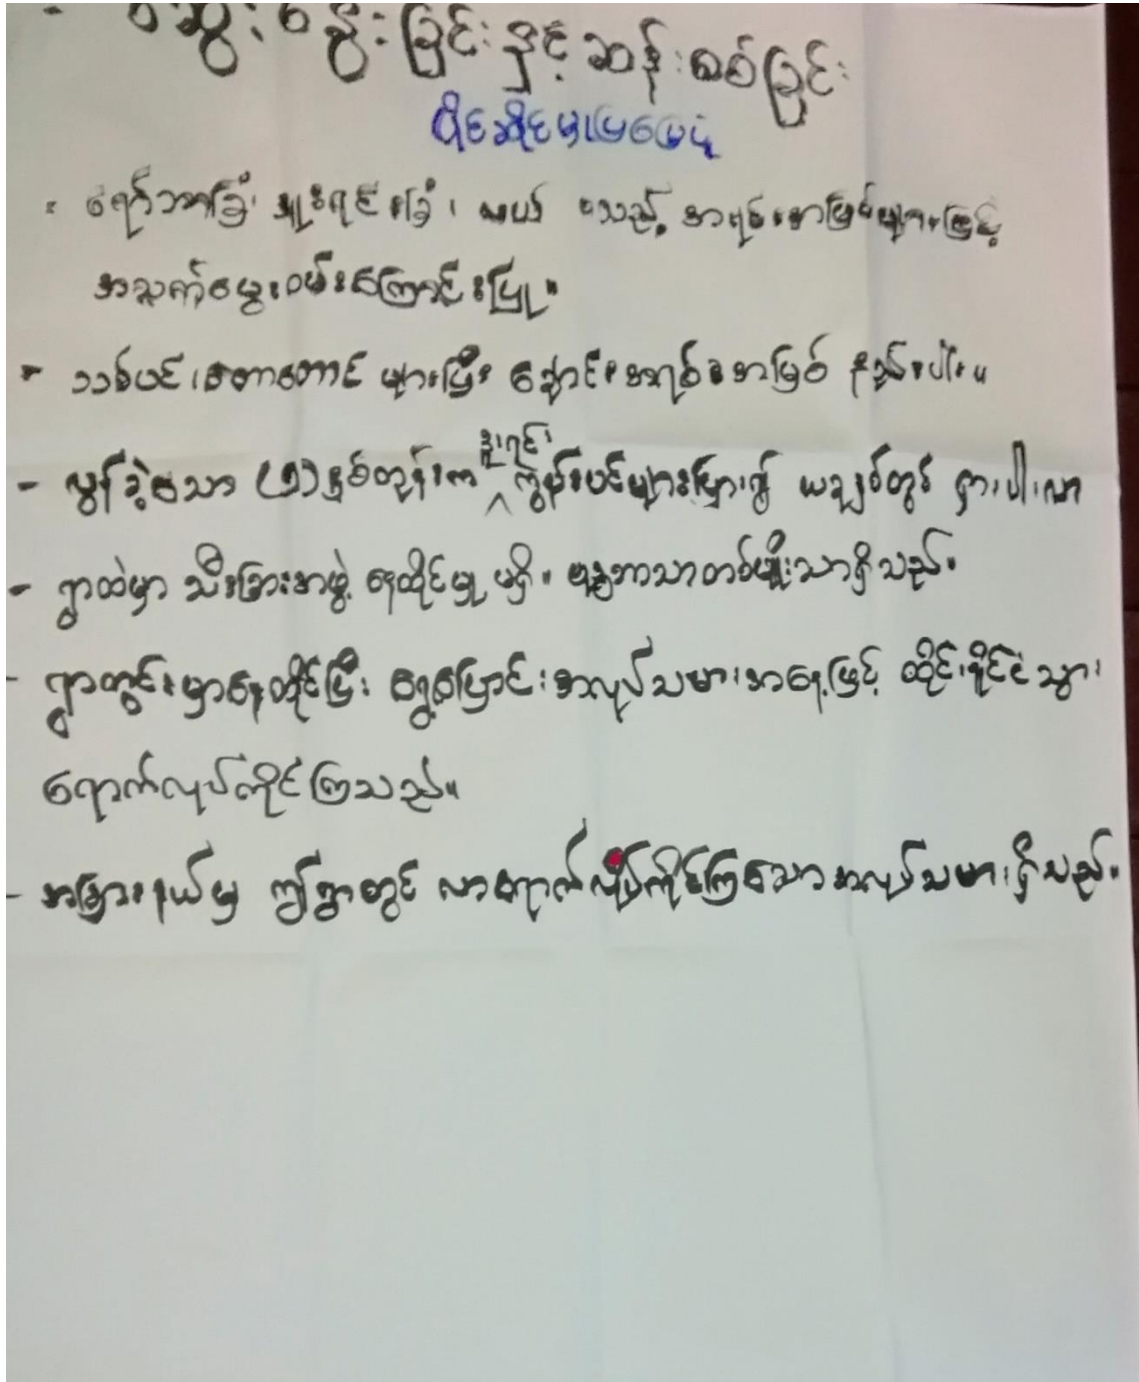 - ဆွေးနွေးခြင်းနှင့်ဆန်းစစ်ခြင်း
ပိုင်ဆိုင်မှုပြမြေပုံ
- ရော်ဘာခြံ၊ ဒူးရင်းခြံ၊ သယံ ဇသည့် အရင်းအမြစ်များဖြင့်
အသက်မွေးဝမ်းကြောင်းပြု။
- သစ်ပင်၊တောတောင် များပြီး ချောင်းအရင်းအမြစ် နည်းပါး။
- လွန်ခဲ့သော (၅)နှစ်တုန်းက ဒူးရင်း ကွမ်းပင်များများပြား၍ ယခုနှစ်တွင် ရှားပါးလာ
- ရွာထဲမှာ သီးခြားအဖွဲ့ နေထိုင်မှု မရှိ။ ဗုဒ္ဓဘာသာတစ်မျိုးသာရှိသည်။
- ရွာတွင်းမှာနေထိုင်ပြီး ရွှေ့ပြောင်းအလုပ်သမားအနေဖြင့် ထိုင်းနိုင်ငံသွား
ရောက်လုပ်ကိုင်ကြသည်။
- အခြားနယ်မှ ဤရွာတွင် လာရောက်လုပ်ကိုင်ကြသောအလုပ်သမားရှိသည်။